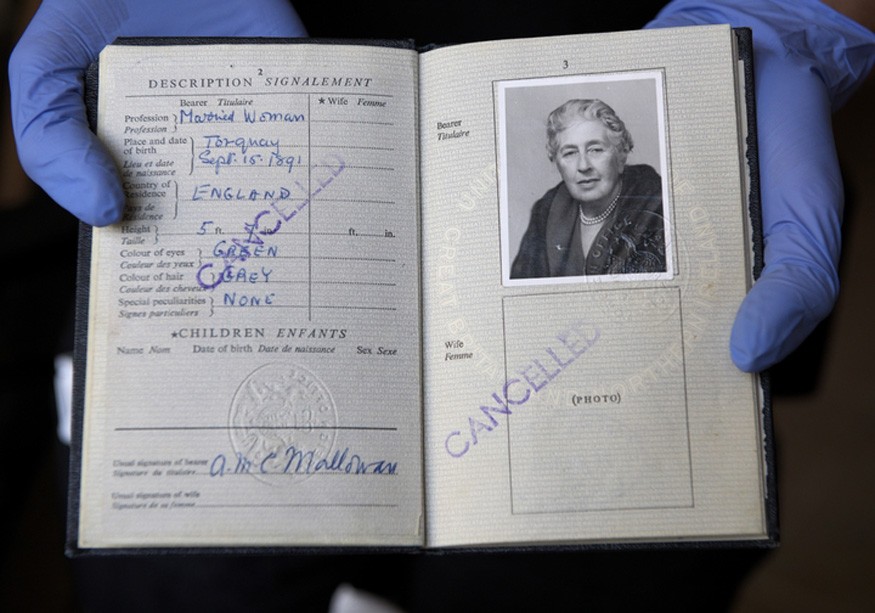 2
DESCRIPTION SIGNALEMENT
Bearer Titulaire ★ Wife Femme
Profession
Profession
Married Woman
Place and date
of birth
Lieu et date
de naissance
Torquay
Sept. 15. 1891
Country of
Residence
Pays de
Résidence
ENGLAND
Height
Taille
5 ft. in. ft. in.
Colour of eyes
Couleur des yeux
GREEN
Colour of hair
Couleur des cheveux
GREY
Special peculiarities
Signes particuliers
NONE
CANCELLED
★CHILDREN ENFANTS
Name Nom Date of birth Date de naissance Sex Sexe
Usual signature of bearer
Signature du titulaire
A. M. C. Mallowan
Usual signature of wife
Signature de sa femme
3
Bearer
Titulaire
Wife
Femme
(PHOTO)
CANCELLED